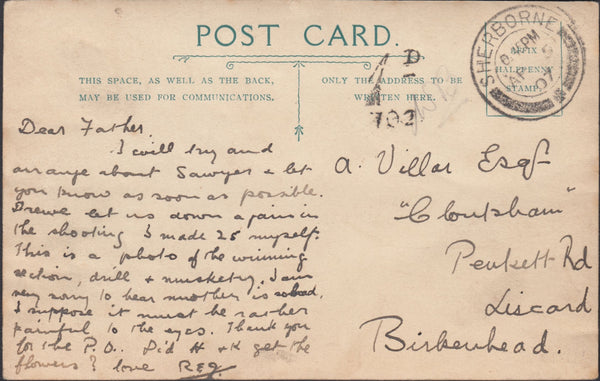 POST CARD.
THIS SPACE, AS WELL AS THE BACK,
MAY BE USED FOR COMMUNICATIONS.
ONLY THE ADDRESS TO BE
WRITTEN HERE.
AFFIX
HALFPENNY
STAMP
SHERBORNE
PM
07
1D
702
Dear Father.
I will try and
arrange about Sawyer & let
you know as soon as possible.
Drewe let us down again in
the shooting I made 25 myself.
This is a photo of the winning
section, drill & musketry. I am
very sorry to hear mother is so bad,
I suppose it must be rather
painful to the eyes. Thank you
for the P.O. Did H & K get the
flowers? love Reg.
A. Villar Esqr
"Cloutsham"
Penkett Rd
Liscard
Birkenhead.